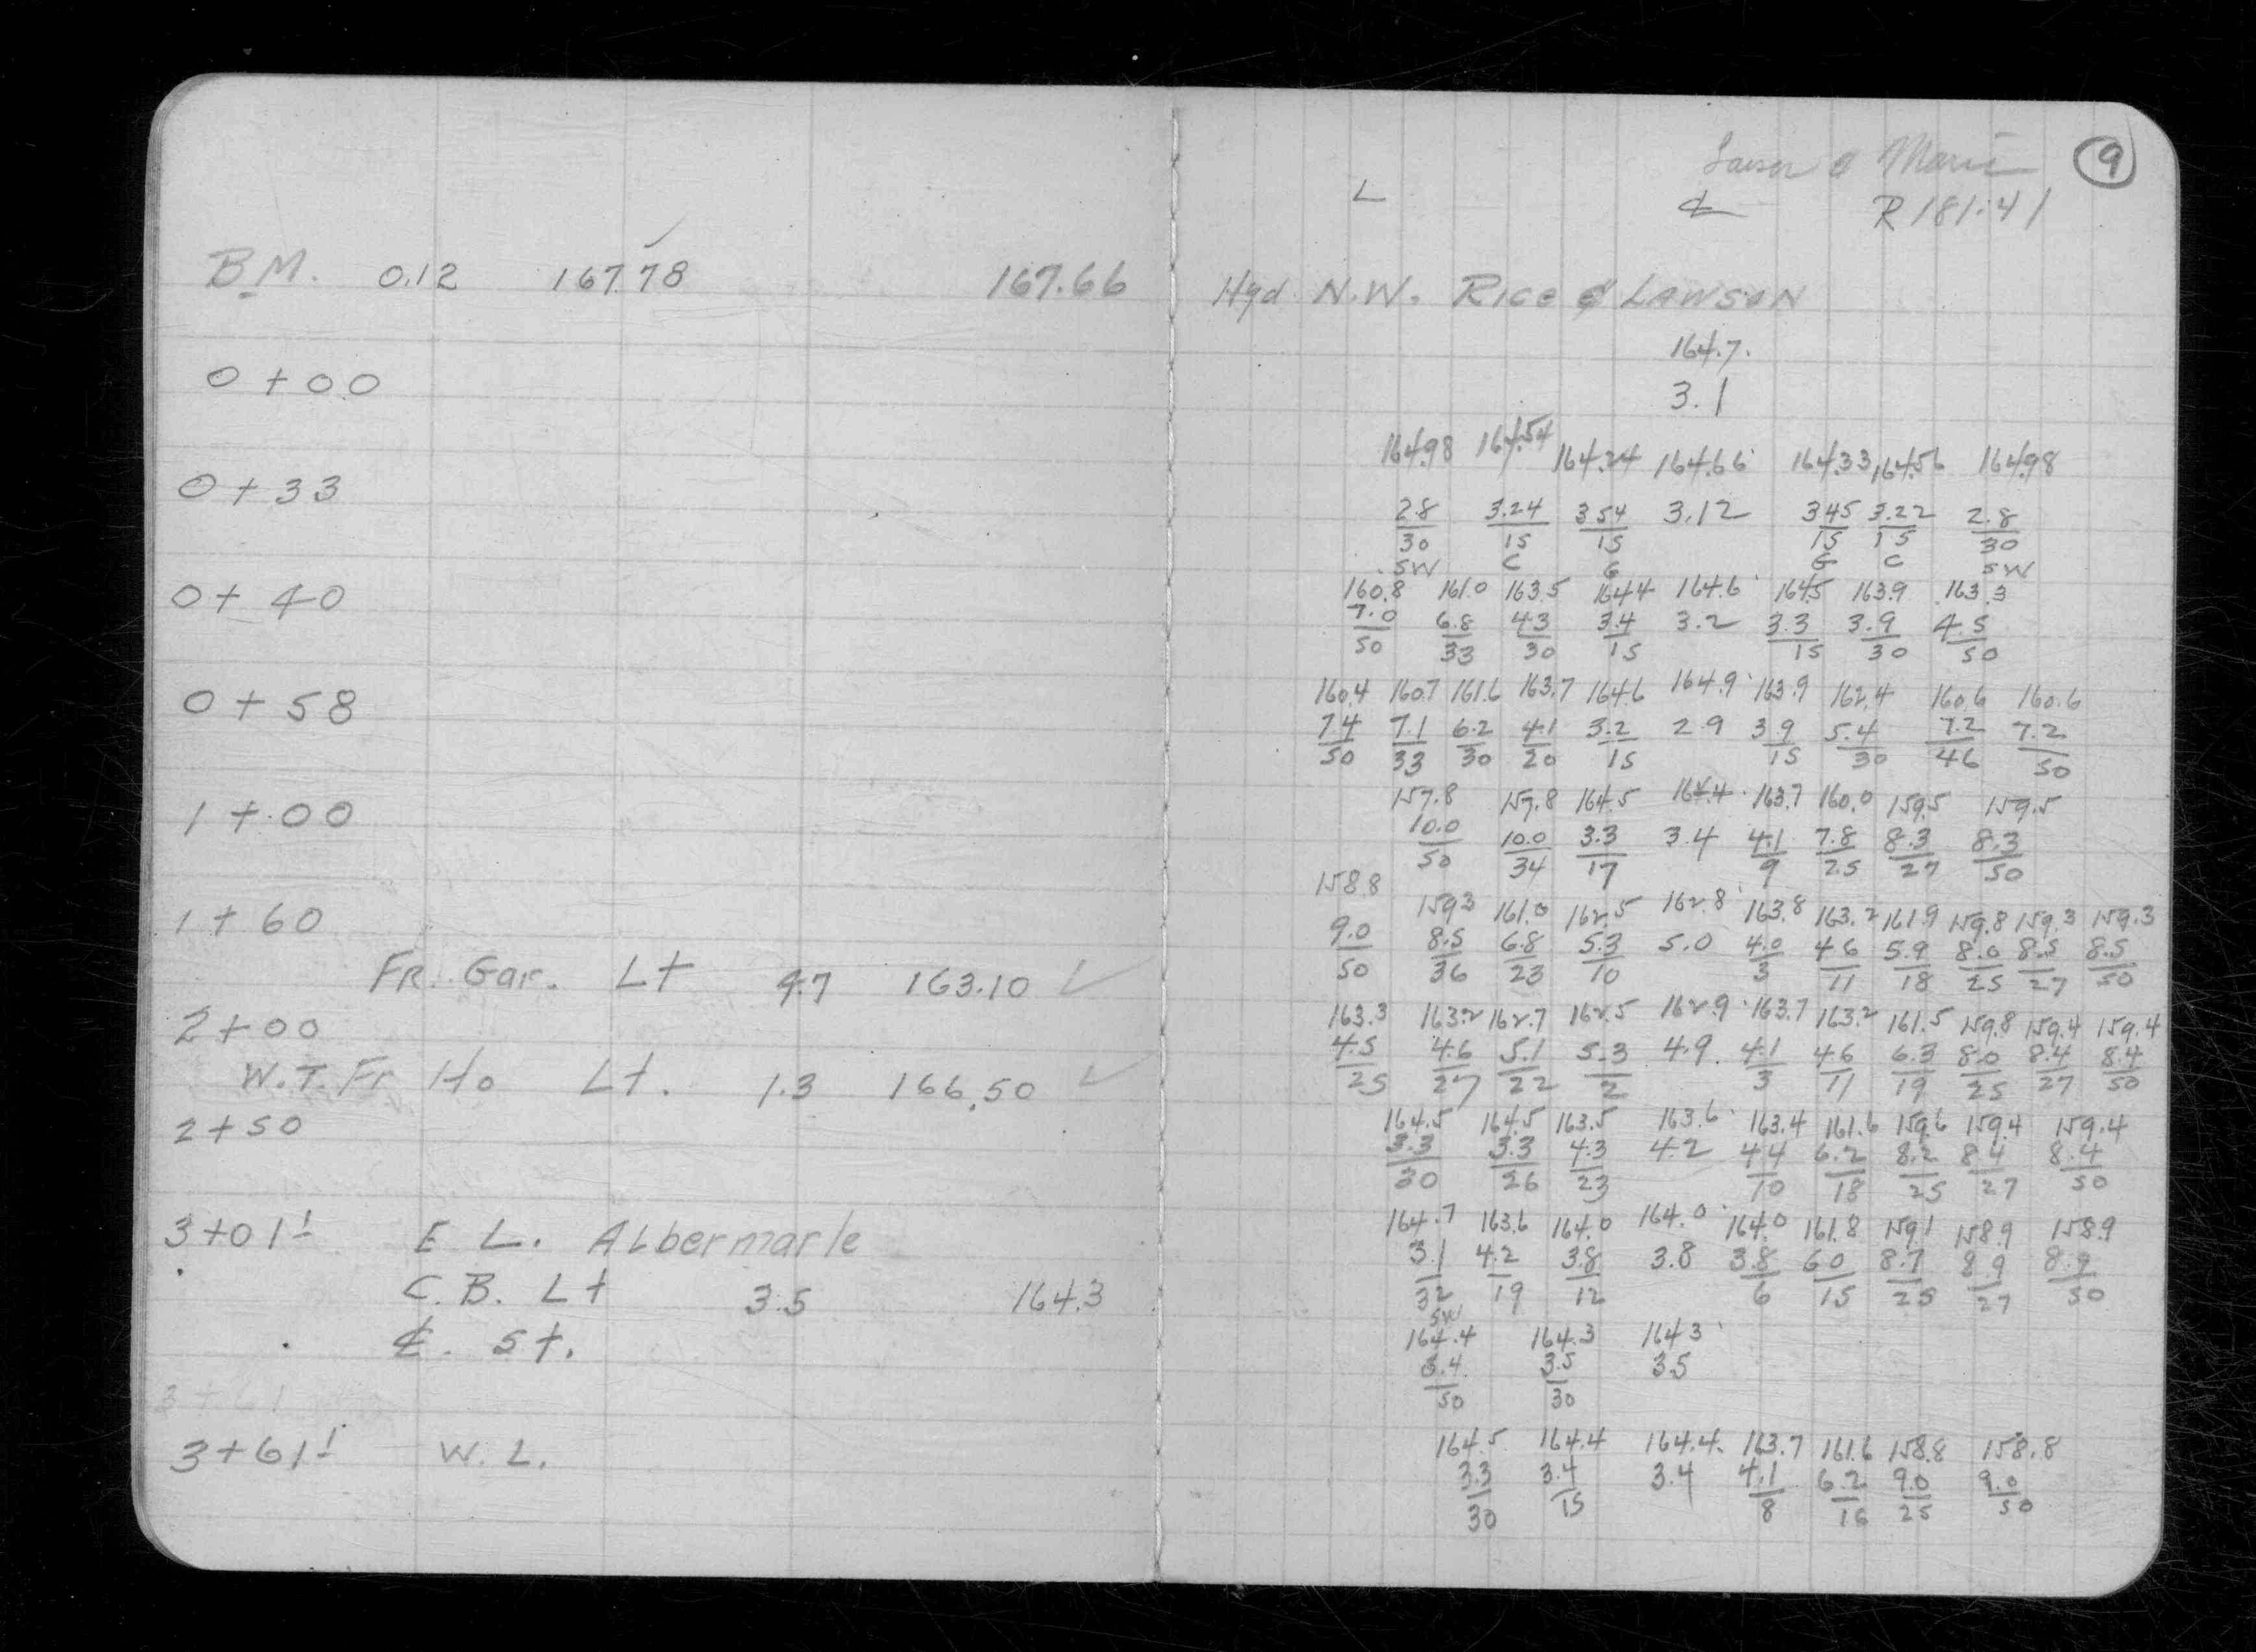 9
L ℄ R 181.41
B.M. 0.12 167.78 167.66 Hyd N.W. RICE & LAWSON
164.7
0+00 3.1
164.98 164.54 164.24 164.66 164.33 164.56 164.98
0+33 2.8 3.24 3.54 3.12 3.45 3.22 2.8
30 15 15 15 15 30
SW C G G C SW
160.8 161.0 163.5 164.4 164.6 164.5 163.9 163.3
0+40 7.0 6.8 4.3 3.4 3.2 3.3 3.9 4.5
50 33 30 15 15 30 50
160.4 160.7 161.6 163.7 164.6 164.9 163.9 162.4 160.6 160.6
0+58 7.4 7.1 6.2 4.1 3.2 2.9 3.9 5.4 7.2 7.2
50 33 30 20 15 15 30 46 50
157.8 157.8 164.5 164.4 163.7 160.0 159.5 159.5
1+00 10.0 10.0 3.3 3.4 4.1 7.8 8.3 8.3
50 34 17 9 25 27 50
158.8 159.3 161.0 162.5 162.8 163.8 163.2 161.9 159.8 159.3 159.3
1+60 9.0 8.5 6.8 5.3 5.0 4.0 4.6 5.9 8.0 8.5 8.5
50 36 23 10 3 11 18 25 27 50
FR. Gar. Lt 4.7 163.10
163.3 163.2 162.7 162.5 162.9 163.7 163.2 161.5 159.8 159.4 159.4
2+00 4.5 4.6 5.1 5.3 4.9 4.1 4.6 6.3 8.0 8.4 8.4
25 27 22 2 3 11 19 25 27 50
W.T. Fr Ho Lt. 1.3 166.50
164.5 164.5 163.5 163.6 163.4 161.6 159.6 159.4 159.4
2+50 3.3 3.3 4.3 4.2 4.4 6.2 8.2 8.4 8.4
30 26 23 10 18 25 27 50
164.7 163.6 164.0 164.0 164.0 161.8 159.1 158.9 158.9
3+011 E L. Albermarle 3.1 4.2 3.8 3.8 3.8 6.0 8.7 8.9 8.9
32 19 12 6 15 25 27 50
SW
C.B. Lt 3.5 164.3
164.4 164.3 164.3
℄. St. 3.4 3.5 3.5
50 30
3+61
164.5 164.4 164.4 163.7 161.6 158.8 158.8
3+611 W.L. 3.3 3.4 3.4 4.1 6.2 9.0 9.0
30 15 8 16 25 50